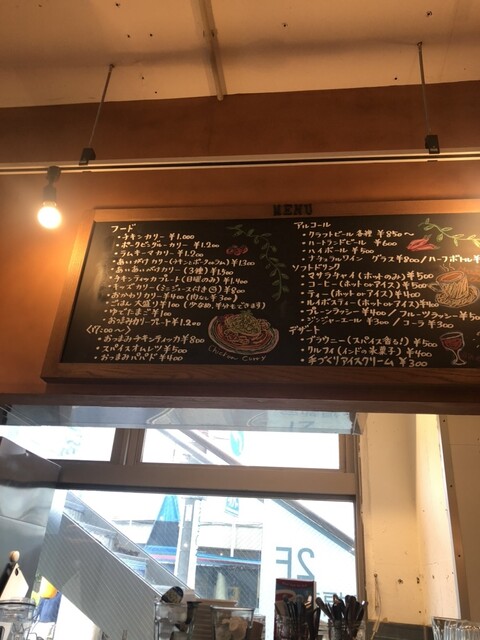 MENU
フード
・チキンカリー ¥1,000
・ポークビンダルーカリー ¥1,200
・ラムキーマカリー ¥1,200
・あいがけカリー ¥1,300
・あいあいがけカリー (3種) ¥1,500
・チキンティックカプレート ¥1,400
・キッズカリー ¥800
・おかわりカリー ¥400 (肉なし ¥300)
・ごはん大盛り ¥100
・ゆでたまご ¥100
・おつまみカリープレート ¥1,200
(17:00〜)
・おつまみチキンティッカ ¥800
・スパイスオムレツ ¥500
・おつまみパパド ¥400
Chicken Curry
アルコール
・クラフトビール各種 ¥850〜
・ハートランドビール ¥600
・ハイボール ¥500
・ナチュラルワイン グラス ¥800〜/ハーフボトル
ソフトドリンク
・マサラチャイ (ホットのみ) ¥500
・コーヒー (ホット or アイス) ¥500
・ティー (ホット or アイス) ¥400
・ルイボスティー (ホット or アイス) ¥400
・プレーンラッシー ¥400/フルーツラッシー ¥500
・ジンジャーエール ¥300/コーラ ¥300
デザート
・ブラウニー (スパイス香る!) ¥500
・クルフィ (インドの氷菓子) ¥400
・手づくりアイスクリーム ¥300
2F